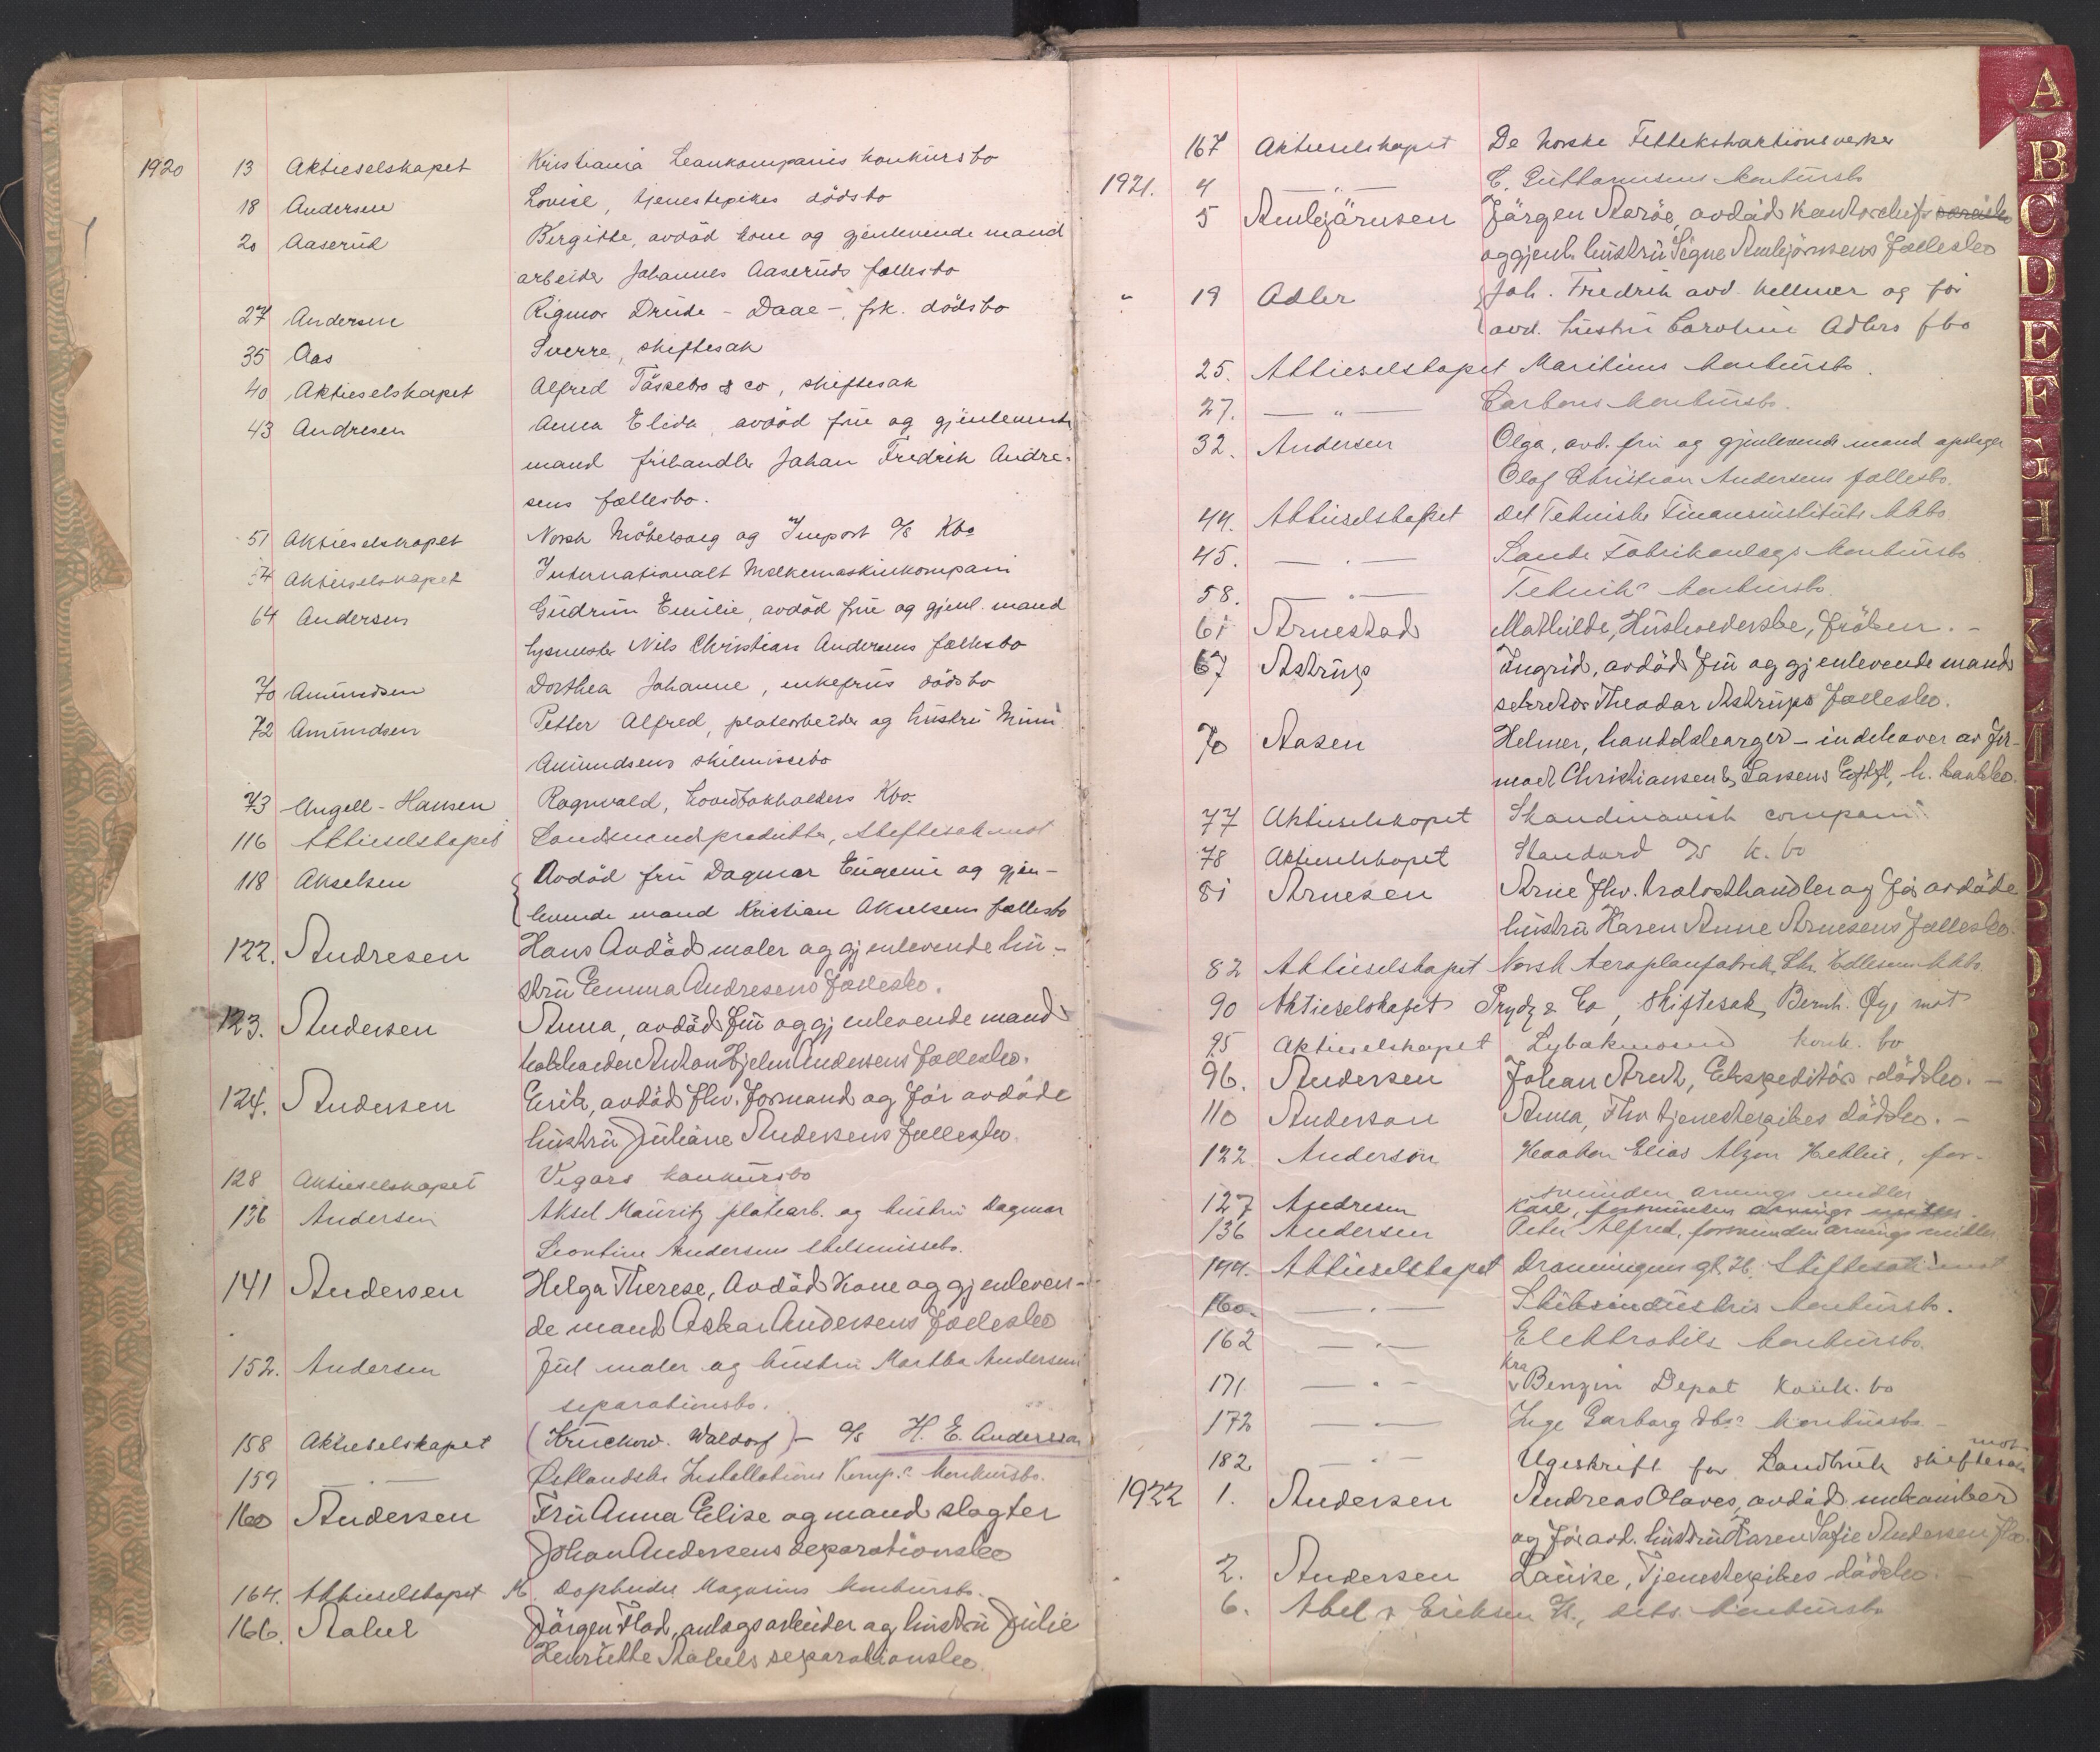 1920 13 Aktieselskapet Kristiania Leankompanis konkursbo
18 Andersen Lovise, tjenestepikes dödsbo
20 Aaserud Bergitte, avdöd kone og gjenlevende mand
arbeider Johannes Aaseruds fællesbo
27 Andersen Rigmor Drude - Daae -, frk. dödsbo
35 Aas Sverre, skiftesak
40 Aktieselskapet Alfred & co, skiftesak
43 Andresen Anna Elida, avdöd frue og gjenlevende
mand frihandler Johan Fredrik Andre-
sens fællesbo.
51 Aktieselskapet Norsk Möbelsalg og Import A/S Kbo
54 Aktieselskapet Internationalt Melkemaskinkompani
64 Andersen Gudrun Emilie, avdöd frue og gjenl. mand
Nils Christian Andersens fællesbo
70 Amundsen Dorthea Johanne, enkefrus dödsbo
72 Amundsen Petter Alfred, platearbeider og hustru Mimi
Amundsens skilsmissebo
73 Angell-Hansen Ragnvald, hovedbokholders Kbo.
116 Aktieselskapet Landsmandsprodukter, skiftesak mot
118 Akselsen Avdöd fru Dagmar Eugenie og gjen-
levende mand Kristian Akselsens fællesbo
122. Andresen Hans Avdöd maler og gjenlevende hu-
stru Emma Andresens fællesbo.
123. Andersen Anna, avdöd fru og gjenlevende mand
Anton Hjelm Andersens fællesbo.
124. Andersen Erik, avdöd fhv. formand og för avdöde
hustru Juliane Andersens fællesbo.
128 Aktieselskapet Vegars konkursbo
136 Andersen Aksel Mauritz platearb. og hustru Dagmar
Leontine Andersens skilsmissebo.
141 Andersen Helga Therese, Avdöd kone og gjenleven-
de mand Oskar Andersens fællesbo
152. Andersen Jul maler og hustru Martha Andersens
separationsbo.
158 Aktieselskapet (Kruckow. Waldorf) - A/S H. E. Anderssen
159 — " — Östlandske Installations Komp.s konkursbo.
160 Andersen Fru Anna Elise og mand slagter
Johan Andersens separationsbo
164. Aktieselskapet M. Dopheides Magasins konkursbo.
166. Aabel Jörgen Flod, anlagsarbeider og hustru Julie
Henriette Aabels separationsbo.
167 Aktieselskapet De norske Fettekstraktionsverker
1921. 4 — " — C. Guttormsens konkursbo
5 Arnbjörnsen Jörgen Aaröe, avdöd kontorchef
og gjenl. hustru Signe Arnbjörnsens fællesbo
" 19 Adler Joh. Fredrik avd. kellner og för
avd. hustru Caroline Adlers fbo
25. Aktieselskapet Maritims konkursbo.
27. — " — Carbons konkursbo.
32. Andersen Olga, avd. fru og gjenlevende mand
Olaf Christian Andersens fællesbo.
44. Aktieselskapet Det Tekniske Finansinstituts kkbo
45. — " — Sande Fabrikanlegs konkursbo
58. — " — Teknik's konkursbo.
61 Arnestad Mathilde, Husholderske, fröken. -
67 Astrup Ingrid, avdöd fru og gjenlevende mand
sekretær Theodor Astrups fællesbo.
70 Aasen Helmer, handelsborger - indehaver av fir-
maet Christiansen & Larsens Eftflg, k. konkbo.
77 Aktieselskapet Skandinavisk compani
78 Aktieselskapet Standard A/S k. bo
81 Arnesen Arne fhv. handler og för avdöde
hustru Karen Anne Arnesens fællesbo.
82 Aktieselskapet Norsk Aeroplanfabrik, kkbo.
90 Aktieselskapet Prydz & Co, skiftesak, Bernh. Øye mot
95 Aktieselskapet Lybakmosens konk. bo
96. Andersen Johan Arndt, Ekspeditörs dödsbo. -
110 Anderson Anna, Fhv tjenestepikes dödsbo. -
122 Anderson Haakon Elias, for-
svunden arvings midler
127 Andresen Karl, forsvunden arvings midler.
136 Andersen Peter Alfred, forsvunden arvings midler
144. Aktieselskapet Dronningens gt. 26, Skiftesak mot
160. — " — Skibsindustris konkursbo.
162 — " — Elektrobils konkursbo.
171 — " — Kra Benzin Depot konk. bo
172 — " — Inge Garborg konkursbo -
182 — " — Ugeskrift for Landbruk skiftesak mot
1922 1. Andersen Andreas Olaves, avdöd
og för avd. hustru Karen Sofie Andersen fbo.
2. Andersen Lauise, Tjenestepikes dödsbo. -
6. Abel & Eriksen A., konkursbo
A
B
C
D
E
F
G
H
I
J
K
L
M
N